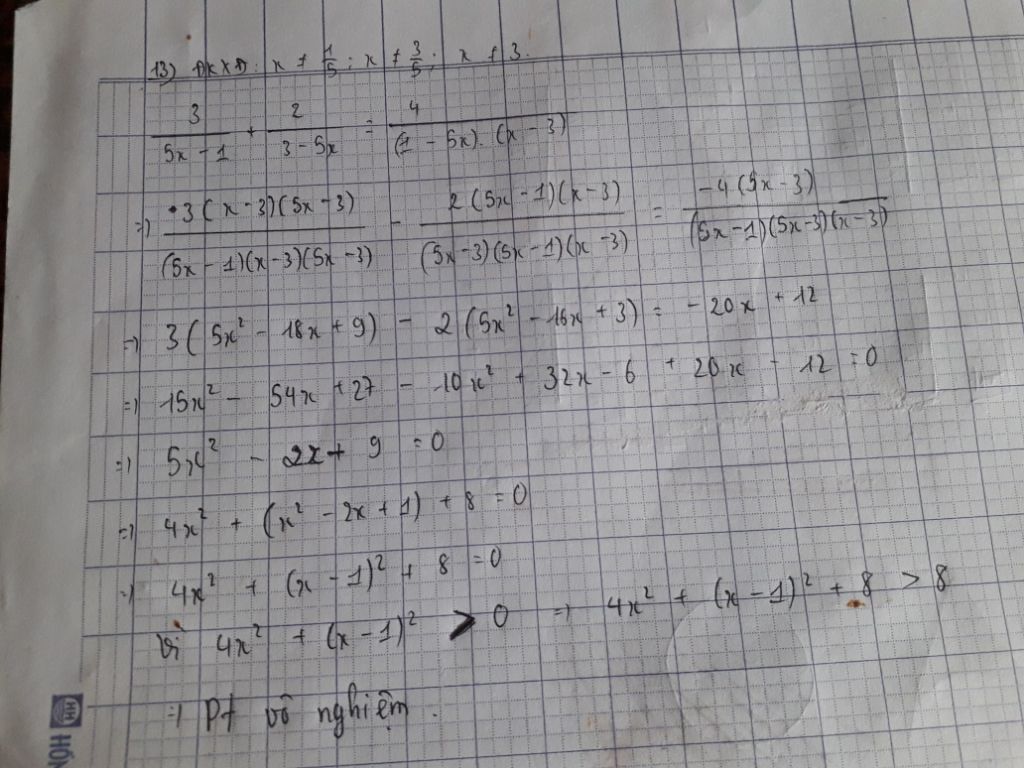 13) ĐKXĐ: x ≠ 1/5; x ≠ 3/5; x ≠ 3.
3/(5x - 1) + 2/(3 - 5x) = 4/((1 - 5x).(x - 3))
=) 3(x - 3)(5x - 3)/((5x - 1)(x - 3)(5x - 3)) - 2(5x - 1)(x - 3)/((5x - 3)(5x - 1)(x - 3)) = -4(5x - 3)/((5x - 1)(5x - 3)(x - 3))
=) 3(5x² - 18x + 9) - 2(5x² - 16x + 3) = -20x + 12
=) 15x² - 54x + 27 - 10x² + 32x - 6 + 20x - 12 = 0
=) 5x² - 2x + 9 = 0
=) 4x² + (x² - 2x + 1) + 8 = 0
=) 4x² + (x - 1)² + 8 = 0
Vì 4x² + (x - 1)² > 0 =) 4x² + (x - 1)² + 8 > 8
=) Pt vô nghiệm.
HH